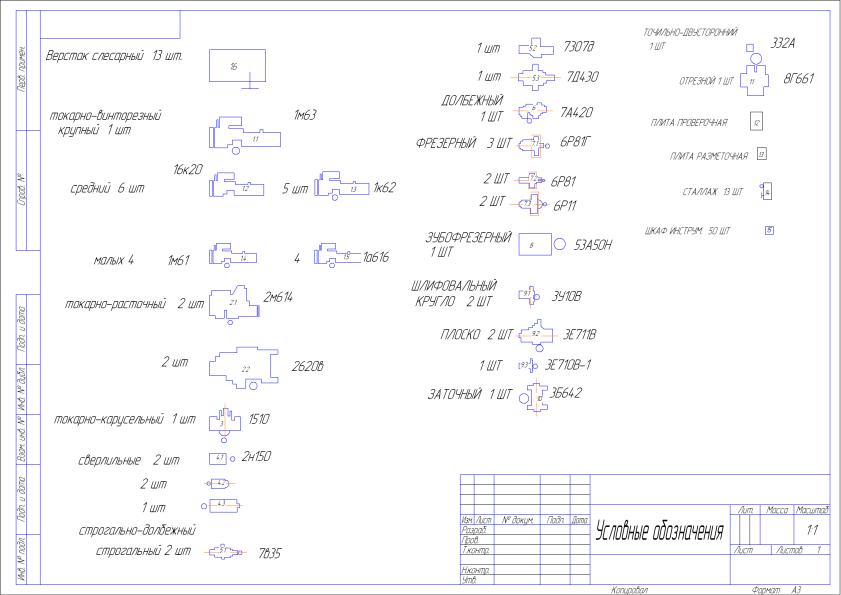 Верстак слесарный 13 шт.
16
токарно-винторезный
крупный 1 шт
1м63
11
16к20
средний 6 шт
12
5 шт
13
1к62
малых 4
1м61
14
4
15
1а616
токарно-расточный 2 шт
2.1
2м614
2 шт
2.2
2620в
токарно-карусельный 1 шт
3
1510
сверлильные 2 шт
4.1
2н150
2 шт
4.2
1 шт
4.3
строгально-долбежный
строгальный 2 шт
5.1
7в35
1 шт
5.2
7307д
1 шт
5.3
7Д430
ДОЛБЕЖНЫЙ
1 ШТ
6
7А420
ФРЕЗЕРНЫЙ 3 ШТ
7.1
6Р81Г
2 ШТ
7.2
6Р81
2 ШТ
7.3
6Р11
ЗУБОФРЕЗЕРНЫЙ
1 ШТ
8
53А50Н
ШЛИФОВАЛЬНЫЙ
КРУГЛО 2 ШТ
9.1
3У10В
ПЛОСКО 2 ШТ
9.2
3Е711В
1 ШТ
9.3
3Е710В-1
ЗАТОЧНЫЙ 1 ШТ
10
3Б642
ТОЧИЛЬНО-ДВУСТОРОННИЙ
1 ШТ
332А
ОТРЕЗНОЙ 1 ШТ
11
8Г661
ПЛИТА ПРОВЕРОЧНАЯ
12
ПЛИТА РАЗМЕТОЧНАЯ
13
СТАЛЛАЖ 13 ШТ
14
ШКАФ ИНСТРУМ. 50 ШТ
15
Перв. примен.
Справ. №
Подп. и дата
Инв. № дубл.
Взам. инв. №
Подп. и дата
Инв. № подл.
Изм. Лист № докум. Подп. Дата
Разраб.
Пров.
Т.контр.
Н.контр.
Утв.
Условные обозначения
Лит. Масса Масштаб
1:1
Лист Листов 1
Копировал Формат А3